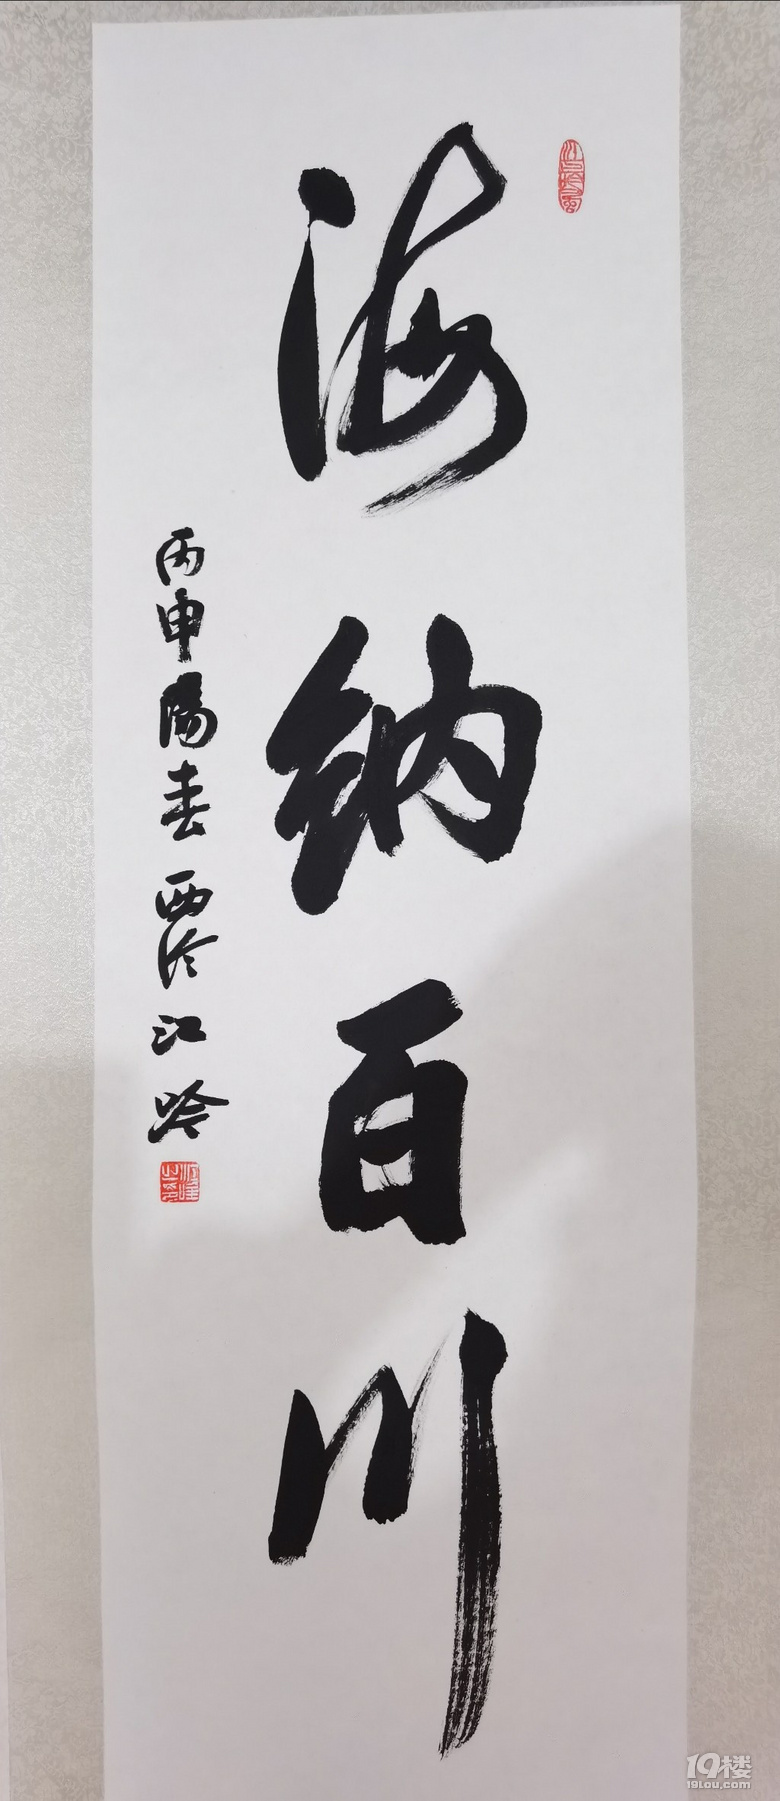 海纳百川
丙申陽春西泠江吟
19楼
19lou.com